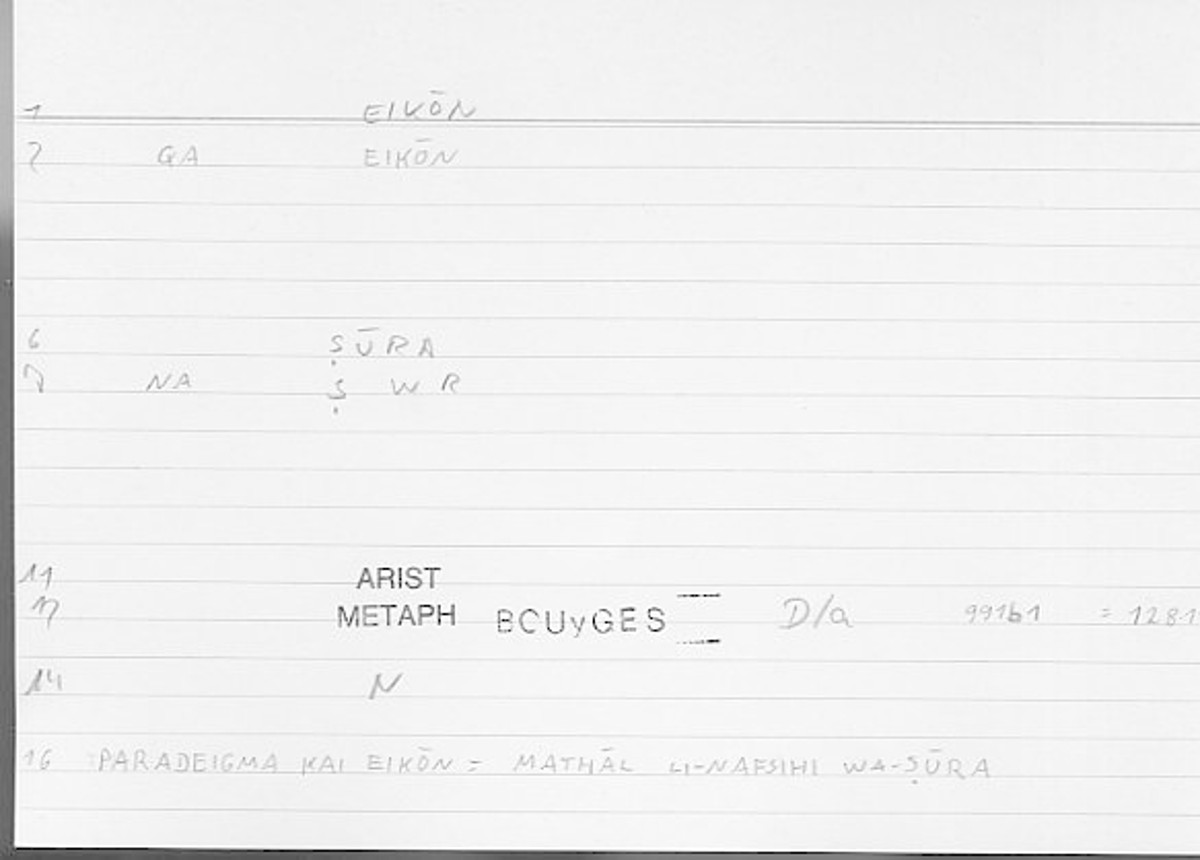 1 EIKŌN
2 GA EIKŌN
6 ṢŪRA
7 NA Ṣ W R
11 ARIST
12 METAPH BCUyGES D/a 991b1 = 128.1
14 N
16 PARADEIGMA KAI EIKŌN = MATHĀL LI-NAFSIHI WA-ṢŪRA